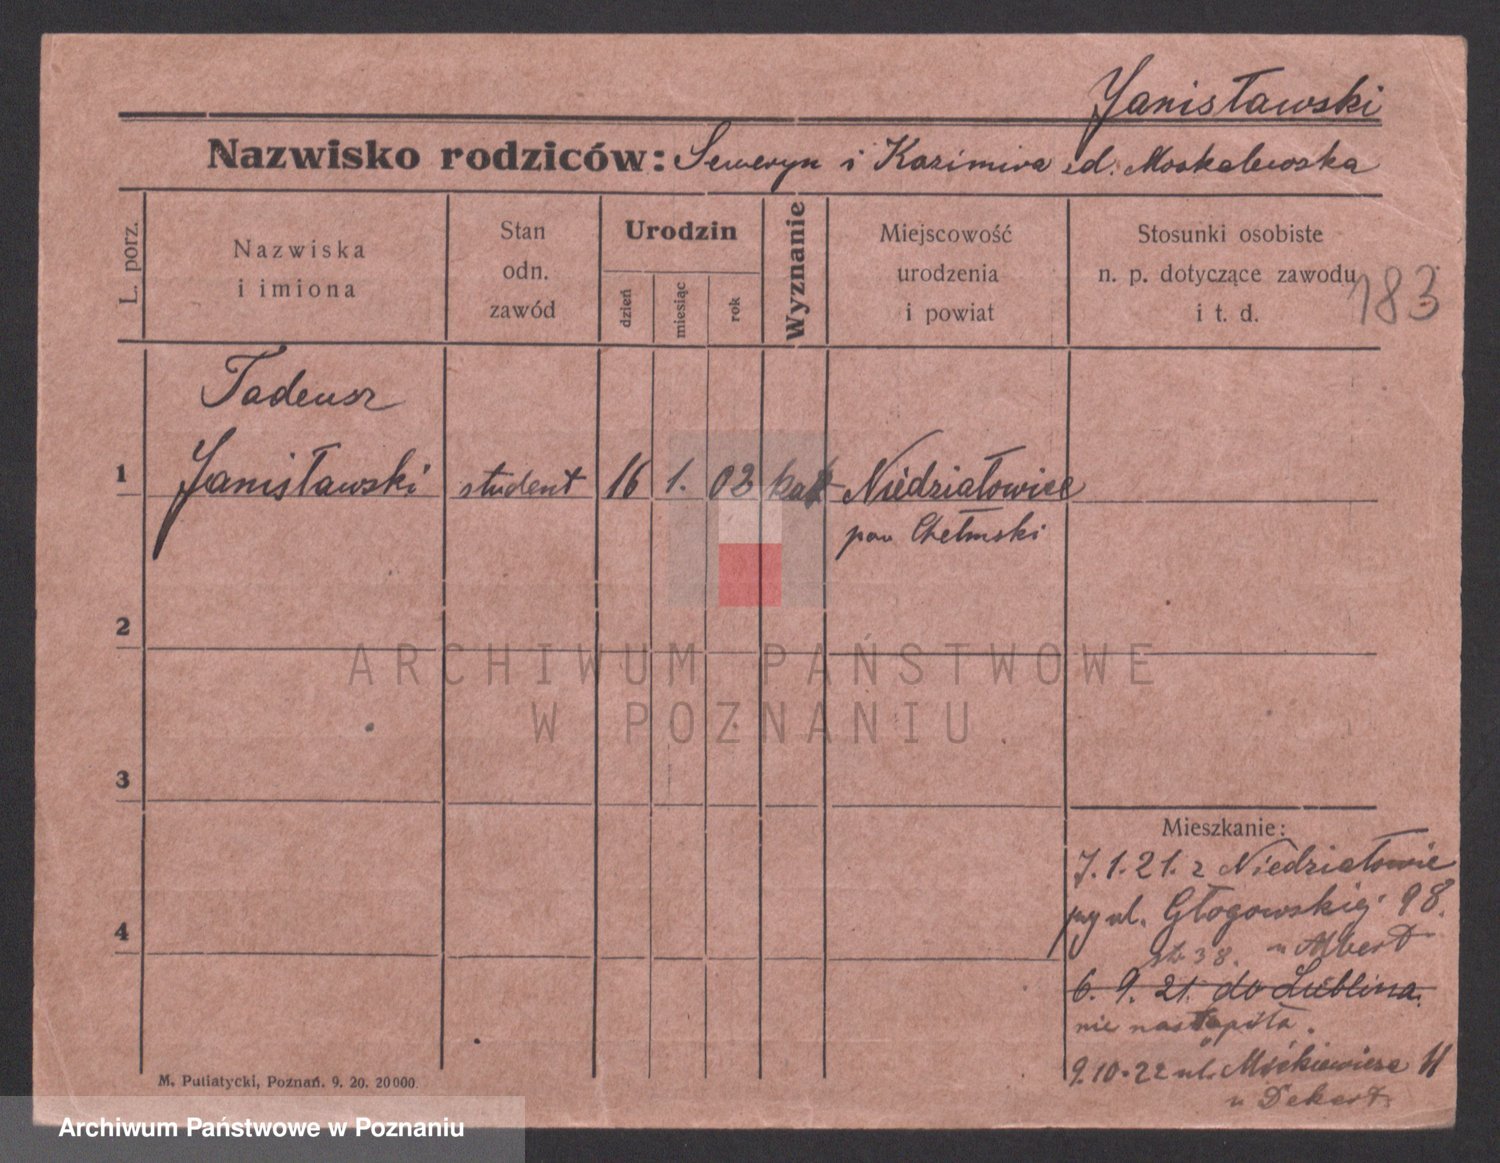 Janisławski
Nazwisko rodziców: Seweryn i Kazimira zd. Moskalewska
L. porz.
Nazwiska
i imiona
Stan
odn.
zawód
Urodzin
dzień
miesiąc
rok
Wyznanie
Miejscowość
urodzenia
i powiat
Stosunki osobiste
n. p. dotyczące zawodu
i t. d.
183
Tadeusz
1 Janisławski student 16 1. 02 kat Niedziałowice
pow Chełmski
2
3
4
ARCHIWUM PAŃSTWOWE
W POZNANIU
Mieszkanie:
7.1.21. z Niedziałowic
przy ul. Głogowskiej 98.
38. u Albert
6. 9. 21. do Lublina.
nie nastąpiła.
9.10.22 ul. Mickiewicza 11
u Dekert
M. Putiatycki, Poznań. 9. 20. 20000.
Archiwum Państwowe w Poznaniu